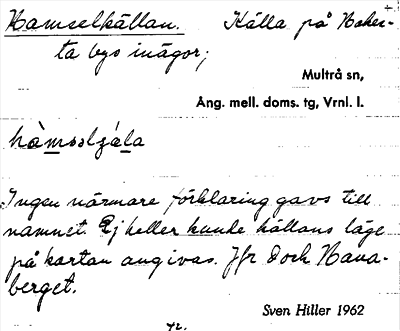 Hamselkällan. Källa på Noker-
ta bys inägor;
Multrå sn,
Ång. mell. doms. tg, Vrnl. l.
hàmsslzála
Ingen närmare förklaring gavs till
namnet. Ej heller kunde källans läge
på kartan angivas. Jfr dock Hana-
berget.
Sven Hiller 1962